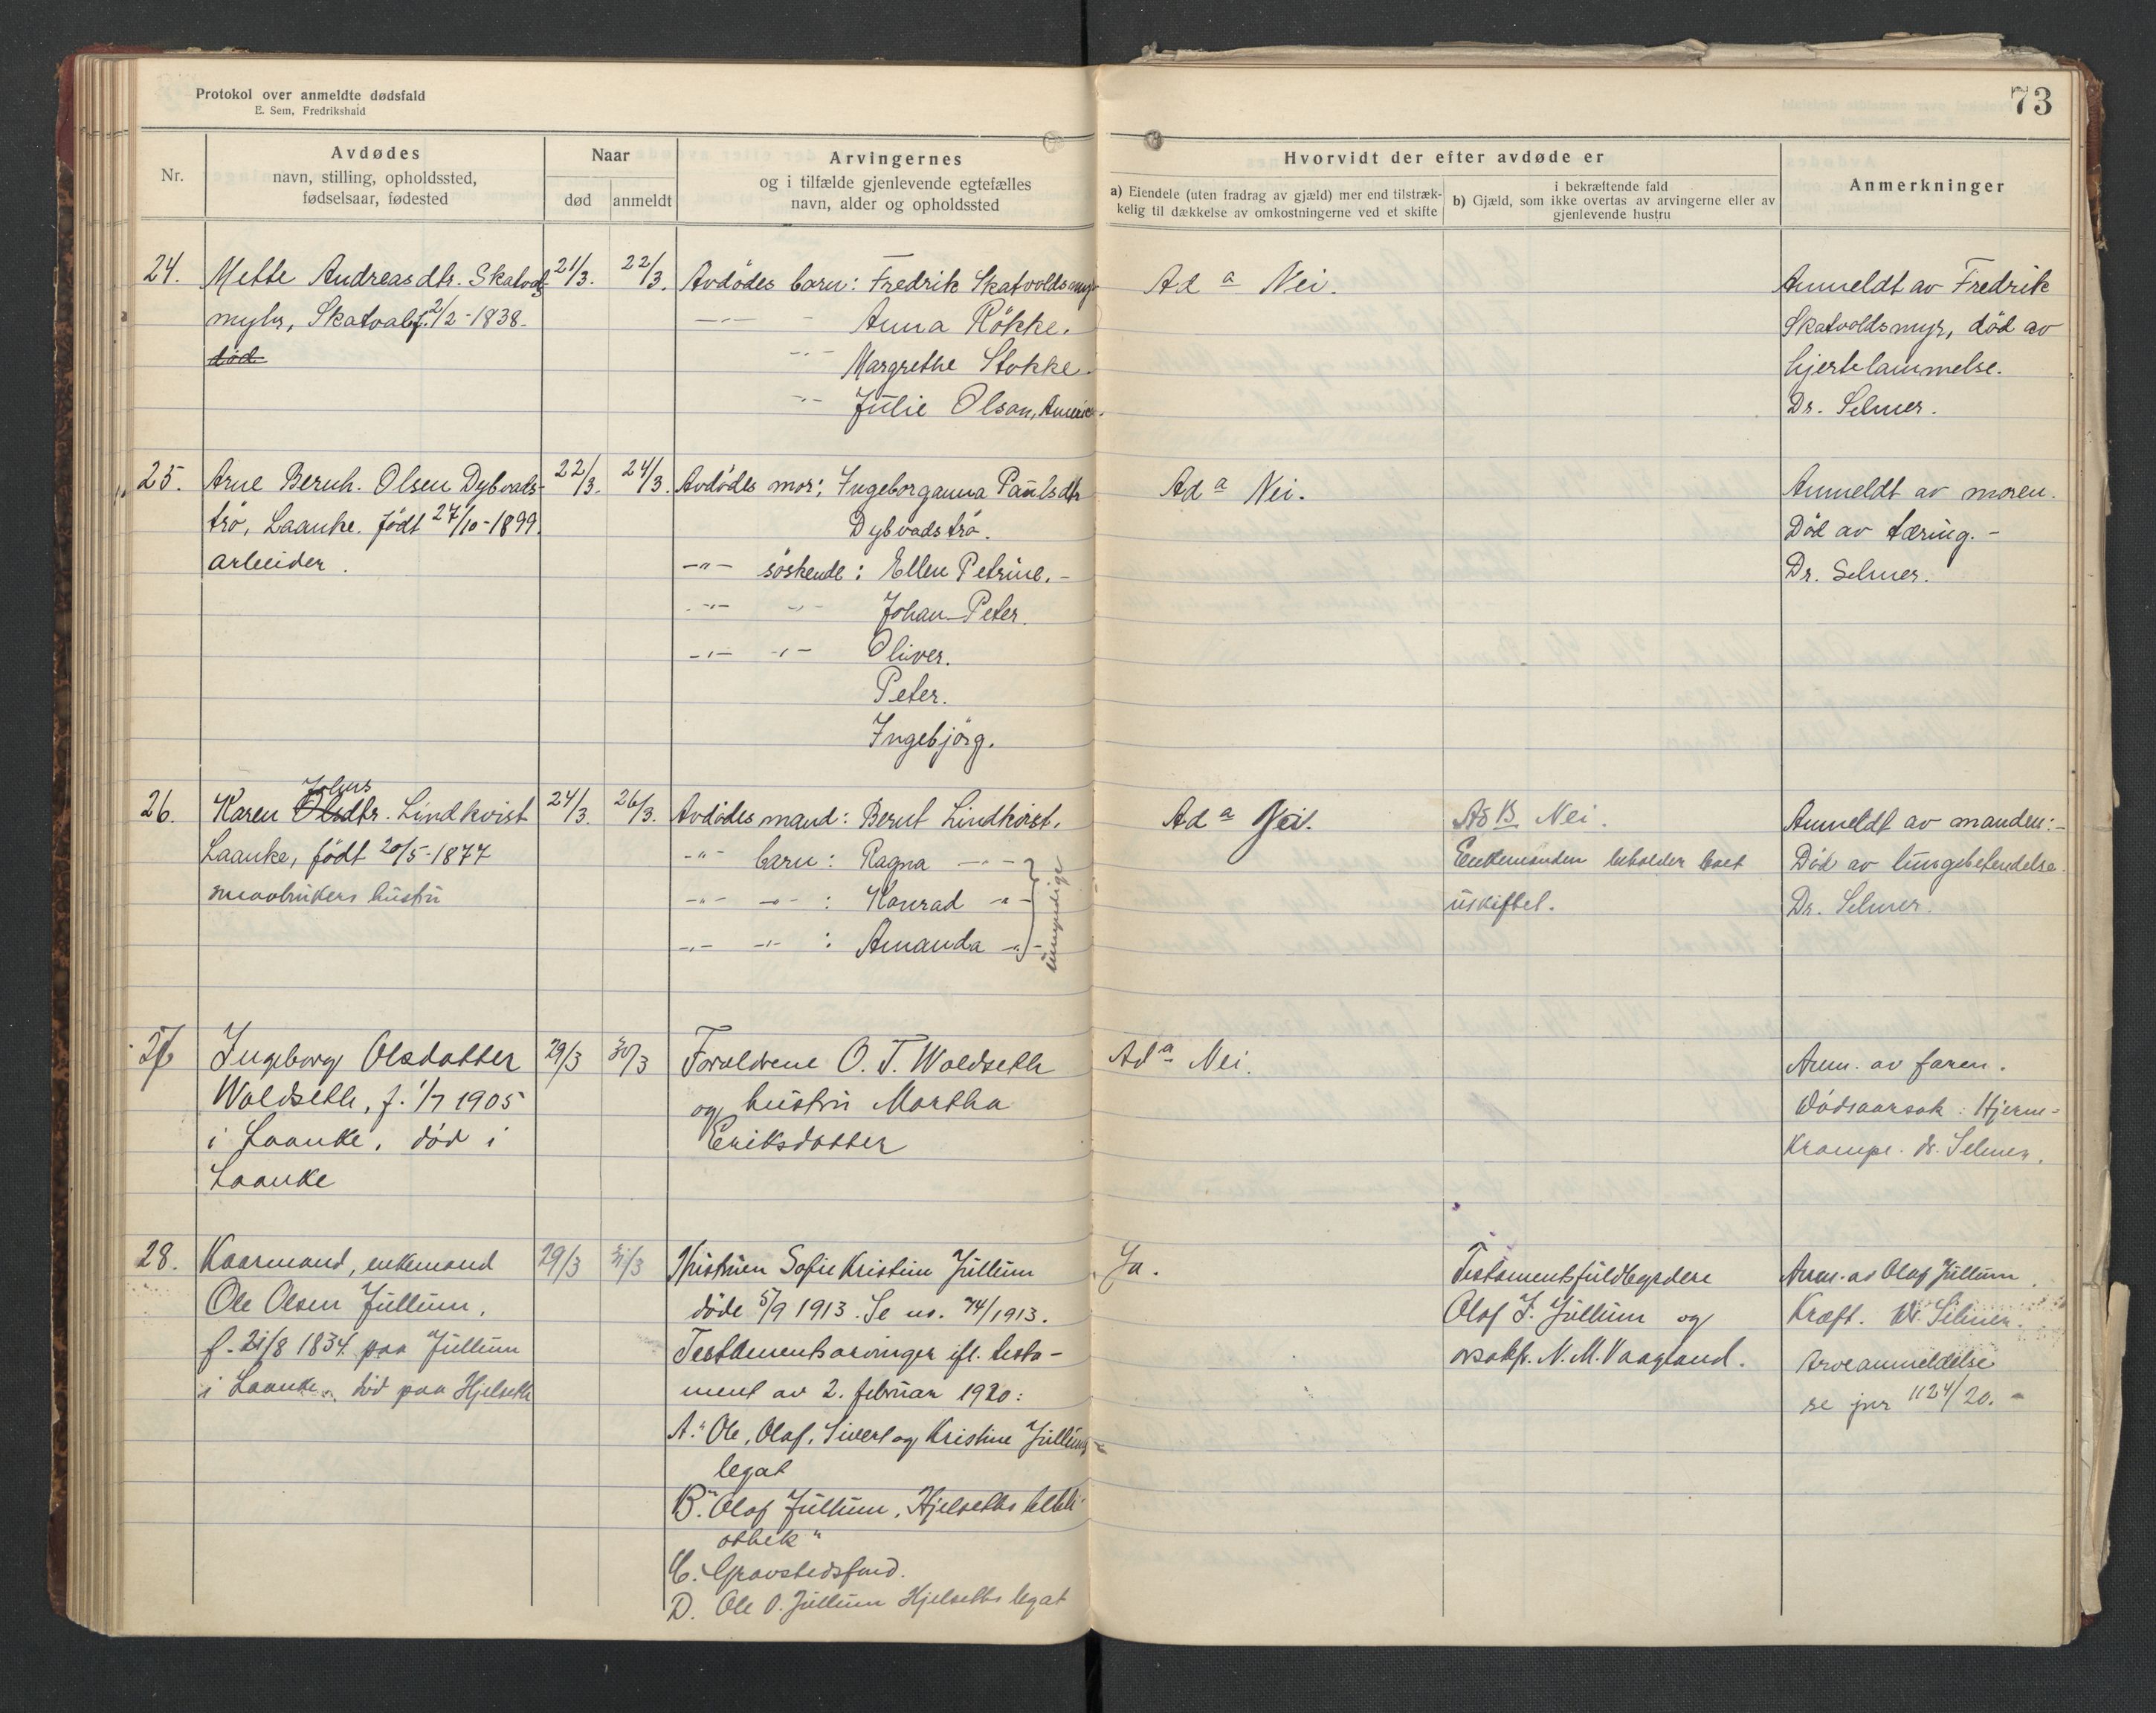 Protokol over anmeldte dødsfald
E. Sem, Fredrikshald
73
Nr.
Avdødes
navn, stilling, opholdssted,
fødselsaar, fødested
Naar
død
anmeldt
Arvingernes
og i tilfælde gjenlevende egtefælles
navn, alder og opholdssted
Hvorvidt der efter avdøde er
a) Eiendele (uten fradrag av gjæld) mer end tilstræk-
kelig til dækkelse av omkostningerne ved et skifte
i bekræftende fald
b) Gjæld, som ikke overtas av arvingerne eller av
gjenlevende hustru
Anmerkninger
24.
Mette Andreasdtr. Skatvols
myhr, Skatval f. 2/2-1838.
død
21/3.
22/3.
Avdødes barn: Fredrik Skatvoldsmyr
—"— Anna Røkke.
—"— Margrethe Stokke.
—"— Julie Olsan, Amerie.
Ad a Nei.
Anmeldt av Fredrik
Skatvoldsmyr, død av
hjertelammelse.
Dr. Selmer.
25.
Arne Bernh. Olsen Dybvads-
trø, Laanke. født 27/10-1899.
arbeider.
22/3.
24/3.
Avdødes mor: Ingeborganna Paulsdtr
Dybvadstrø.
—"— søskende: Ellen Petrine. -
—"— —"— Johan-Peter.
—"— —"— Oliver.
Peter.
Ingebjørg.
Ad a Nei.
Anmeldt av moren.
Død av tæring. -
Dr. Selmer.
26.
Johns
Karen Olsdtr. Lindkvist
Laanke, født 20/5-1877
smaabrukers hustru
24/3.
26/3.
Avdødes mand: Bernt Lindkvist.
—"— barn: Ragna —"—
—"— —"— : Konrad —"—
—"— —"— : Amanda —"—
umyndige
Ad a Nei.
Ad B Nei.
Enkemanden beholder boet
uskiftet.
Anmeldt av manden:-
Død av lungebetendelse.
Dr. Selmer.
27
Ingeborg Olsdatter
Woldseth, f. 1/7 1905
i Laanke, død i
Laanke
29/3
30/3
Foreldrene O. T. Woldseth
og hustru Martha
Eriksdatter
Ad a Nei.
Anm. av faren.
Dødsaarsak: Hjerne-
krampe. dr. Selmer.
28.
Kaarmand, enkemand
Ole Olsen Jullum,
f. 21/8 1834 paa Jullum
i Laanke, død paa Hjelseth
29/3
31/3
Hustruen Sofie Kristine Jullum
døde 5/9 1913. Se nr. 74/1913.
Testamentsarvinger ifl. testa-
ment av 2. februar 1920:
A. "Ole, Olaf, Sivert og Kristine Jullums
legat
B. "Olaf Jullum, Hjelseths bibli-
othek"
C. Gravstedsfond.
D. Ole O. Jullum Hjelseths legat
Ja.
Testamentsfuldbyrdere
Olaf J. Jullum og
o.r.sakf. N. M. Vaagland.
Anm. av Olaf Jullum.
Kræft. Dr. Selmer.
Arveanmeldelse
se jnr 1124/20. -